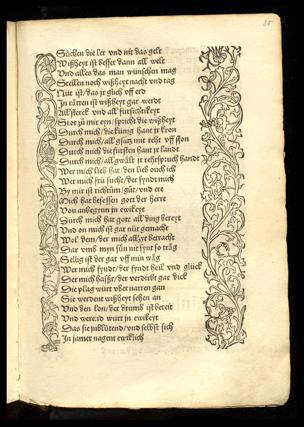 Süchen die ler vnd nit das gelt
Wißheyt ist besser dann all welt
Vnd alles das man wünschen mag
Stellen noch wißheyt nacht vnd tag
Nüt ist / das jr glich vff erd
In räten ist wißheyt gar werdt
All sterck vnd all fürsichtikeyt
Stot zů mir eyn / spricht die wißheyt
Durch mich / die küng hant jr kron
Durch mich / all gsatz mit reht vff ston
Durch mich / die fürsten hant jr landt
Durch mich / all gwält jr rehtspruch handt
Wer mich lieb hat / den lieb ouch ich
Wer mich frü sucht / der fyndt mich
By mir ist richtům / gůt / vnd ere
Mich hat besessen gott der herre
Von anbegynn in ewikeyt
Durch mich hat gott all ding bereyt
Vnd on mich ist gar nüt gemacht
Wol dem / der mich allzyt betracht
Dar vmb myn sün nit synt so träg
Sellig ist der gat vff mim wäg
Wer mich fyndt / der fyndt heil vnd glück
Der mich haßt / der verdirbt gar dick
Die plag würt vber narren gan
Sie werdent wißheyt sehen an
Vnd den lon / der drumb ist bereit
Vnd werend wurt in ewikeyt
Das sie jnblůtend / vnd selbst sich
In jamer nagent ewiklich